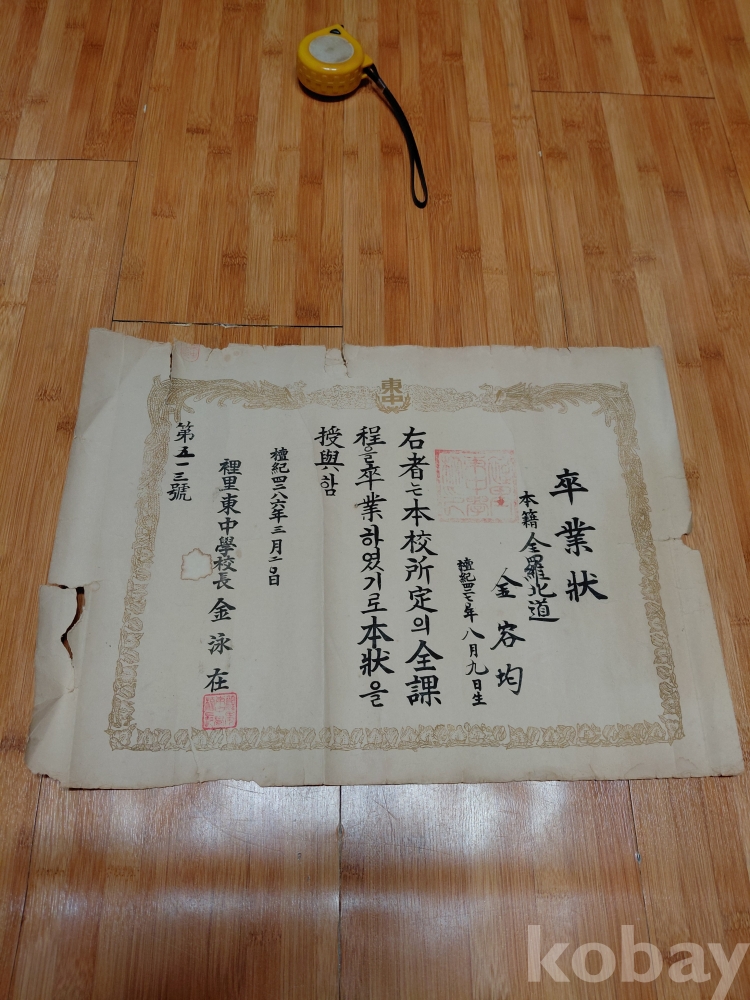 東中
卒業狀
本籍 全羅北道
金容均
檀紀四二七年八月九日生
右者는本校所定의全課
程을卒業하였기로本狀을
授與함
檀紀四二八六年三月二日
裡里東中學校長 金泳在
第五一三號
kobay